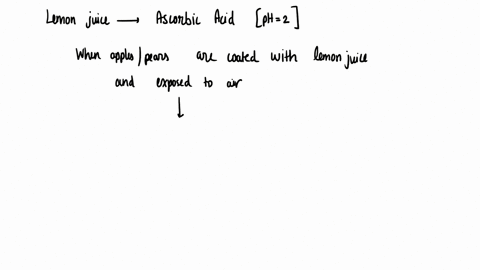 Lemon juice → Ascorbic Acid [pH=2]
When apples/pears are coated with lemon juice
and exposed to air
↓